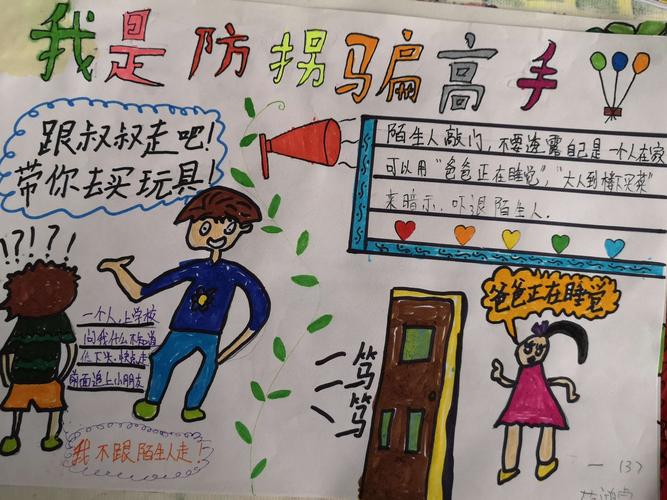 我是防拐骗高手
跟叔叔走吧!
带你去买玩具!
陌生人敲门,不要透露自己是一个人在家
可以用“爸爸正在睡觉”,“大人到楼下买菜”
来暗示、吓退陌生人.
!?!?!
一个人上学校
问我什么不知道
低下头,快点走
前面追上小朋友
我不跟陌生人走!
笃
笃
爸爸正在睡觉
一(3)